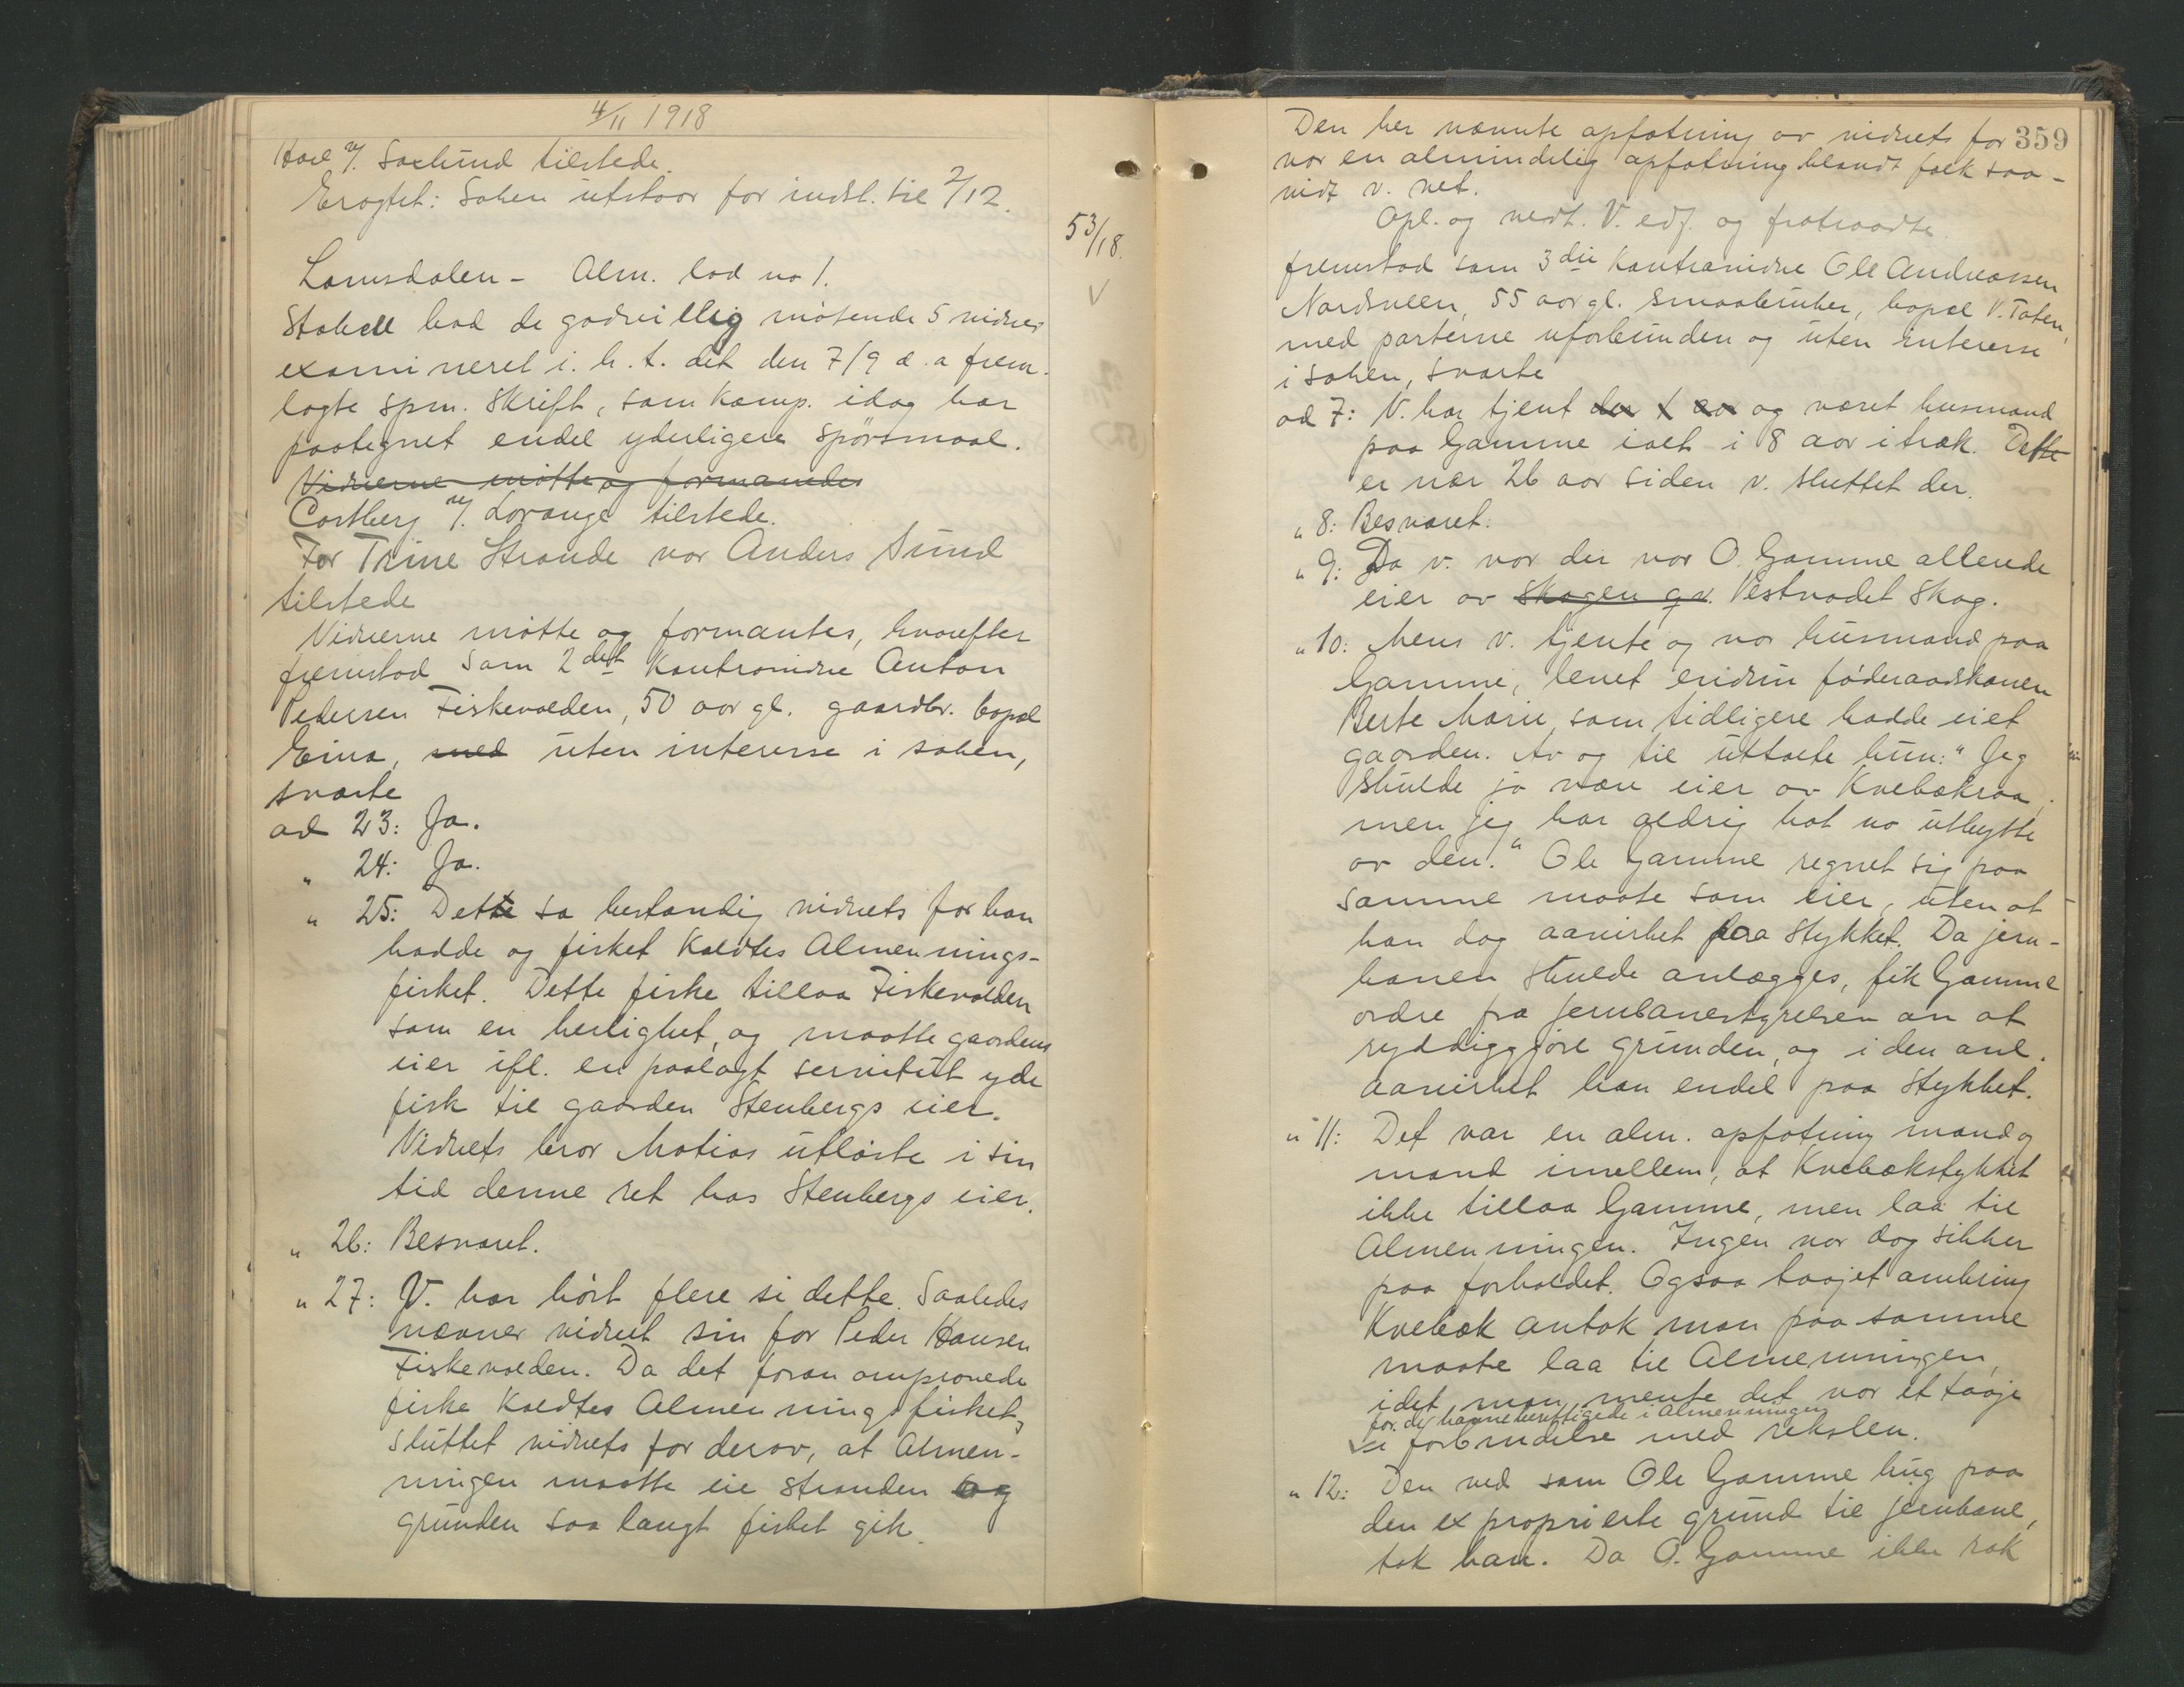 4/11 1918
Hoel v/. Saxlund tilstede.
Eragtet: Saken utstaar for indst. til 2/12.
53/18.
V
Lomsdalen - Alm. lod no 1.
Stabell bad de godvillig møtende 5 vidner
examineret i. h. t. det den 7/9 d. a frem-
lagte spm. Skrift, som komp. idag har
paategnet endel yderligere spørsmaal.
Vidnerne møtte og formanedes
Castberg v/. Lorange tilstede.
For Trine Strande var Anders Sund
tilstede
Vidnerne møtte og formantes, hvorefter
fremstod som 2det Kontravidne Anton
Pedersen Fiskevolden, 50 aar gl. gaardbr. bopæl
Eina, med uten interesse i saken,
svarte
ad 23: Ja.
" 24: Ja.
" 25: Dette sa bestandig vidnets far han
hadde og fisket kaldtes Almennings-
fisket. Dette fiske tillaa Fiskevolden
som en herlighet, og maatte gaardens
eier ifl. en paalagt servitut yde
fisk til gaarden Stenbergs eier.
Vidnets bror Matias utløste i sin
tid denne ret hos Stenbergs eier.
" 26: Besvaret.
" 27: V. har hørt flere si dette. Saaledes
nævner vidnet sin far Peder Hansen
Fiskevolden. Da det foran omprovede
fiske kaldtes Almenningsfisket,
sluttet vidnets far derav, at Almen-
ningen maatte eie stranden og
grunden saa langt fisket gik.
359
Den her nævnte opfatning av vidnets far
var en almindelig opfatning blandt folk saa-
vidt v. vet.
Opl. og vedt. V. edf. og fratraadte.
fremstod som 3die Kontravidne Ole Andreassen
Nordsveen, 55 aar gl. smaabruker, bopæl V. Toten,
med parterne uforbunden og uten interesse
i saken, svarte
ad 7: V. har tjent der i aar og været husmand
paa Gamme ialt i 8 aar itræk. Dette
er nær 26 aar siden v. sluttet der.
" 8: Besvaret.
" 9: Da v. var der var O. Gamme allerede
eier av Skogen gv. Vestvodet Skog.
" 10: Mens v. tjente og var husmand paa
Gamme, levet endnu føderaadskonen
Berte Marie, som tidligere hadde eiet
gaarden. Av og til uttalte hun: "Jeg
skulde jo være eier av Kvebækraa,
men jeg har aldrig hat no utbytte
av den." Ole Gamme regnet sig paa
samme maate som eier, uten at
han dog aavirket paa Stykket. Da jern-
banen skulde anlægges, fik Gamme
ordre fra jernbanestyrelsen om at
ryddiggjøre grunden, og i den anl.
aavirket han endel paa Stykket.
" 11: Det var en alm. opfatning mand og
mand imellem, at Kvebækstykket
ikke tillaa Gamme, men laa til
Almenningen. Ingen var dog sikker
paa forholdet. Ogsaa taajet omkring
Kvebæk antok man paa samme
maate laa til Almenningen,
idet man mente det var et taaje
for de havneberettigede i Almenningen
i forbindelse med rekslen.
" 12: Den ved som Ole Gamme hug paa
den exproprierte grund til jernbane,
tok han. Da O. Gamme ikke rak